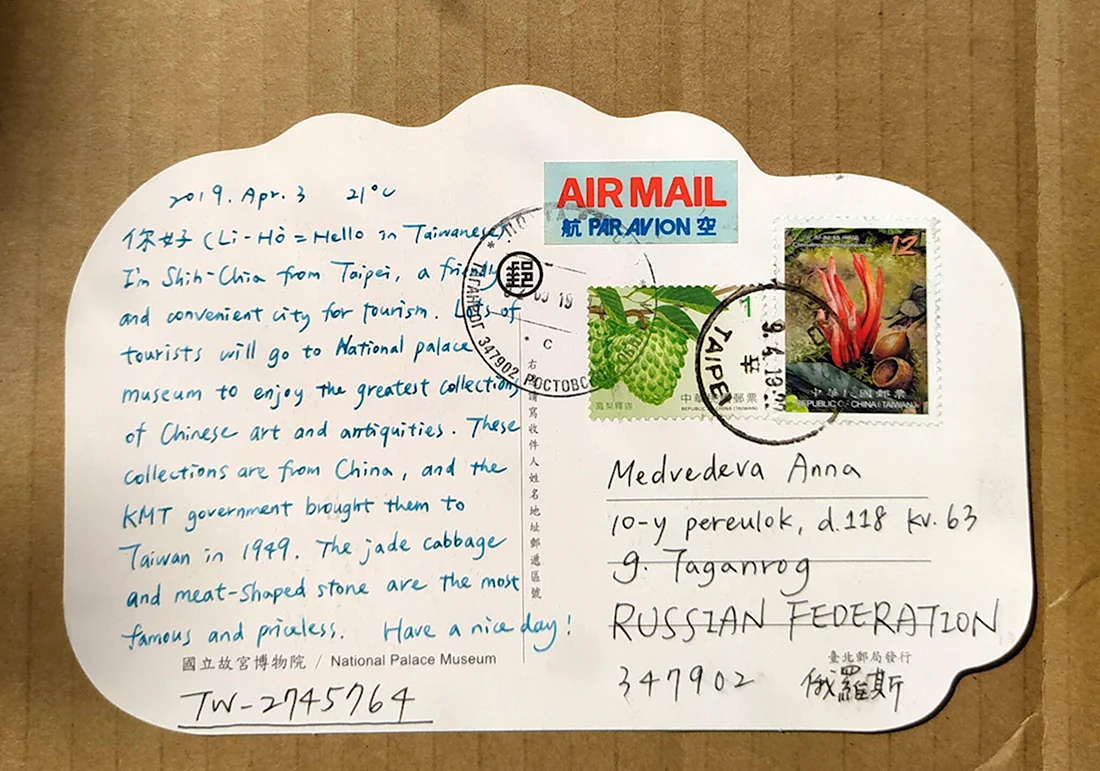 2019. Apr. 3 21°C
你好 (Li-Hò = Hello in Taiwanese)!
I'm Shih-Chia from Taipei, a friendly
and convenient city for tourism. Lots of
tourists will go to National palace
museum to enjoy the greatest collections
of Chinese art and antiquities. These
collections are from China, and the
KMT government brought them to
Taiwan in 1949. The jade cabbage
and meat-shaped stone are the most
famous and priceless. Have a nice day!
國立故宮博物院 / National Palace Museum
TW-2745764
AIR MAIL
航 PAR AVION 空
郵
ТАГАНРОГ 347902 РОСТОВС
19
C
右 請寫收件人姓名地址郵遞區號
1
鳳梨釋迦
中華民國郵票
REPUBLIC OF CHINA (TAIWAN)
12
中華民國郵票
REPUBLIC OF CHINA (TAIWAN)
TAIPEI
Medvedeva Anna
10-y pereulok, d.118 kv. 63
g. Taganrog
RUSSIAN FEDERATION
臺北郵局發行
347902 俄羅斯